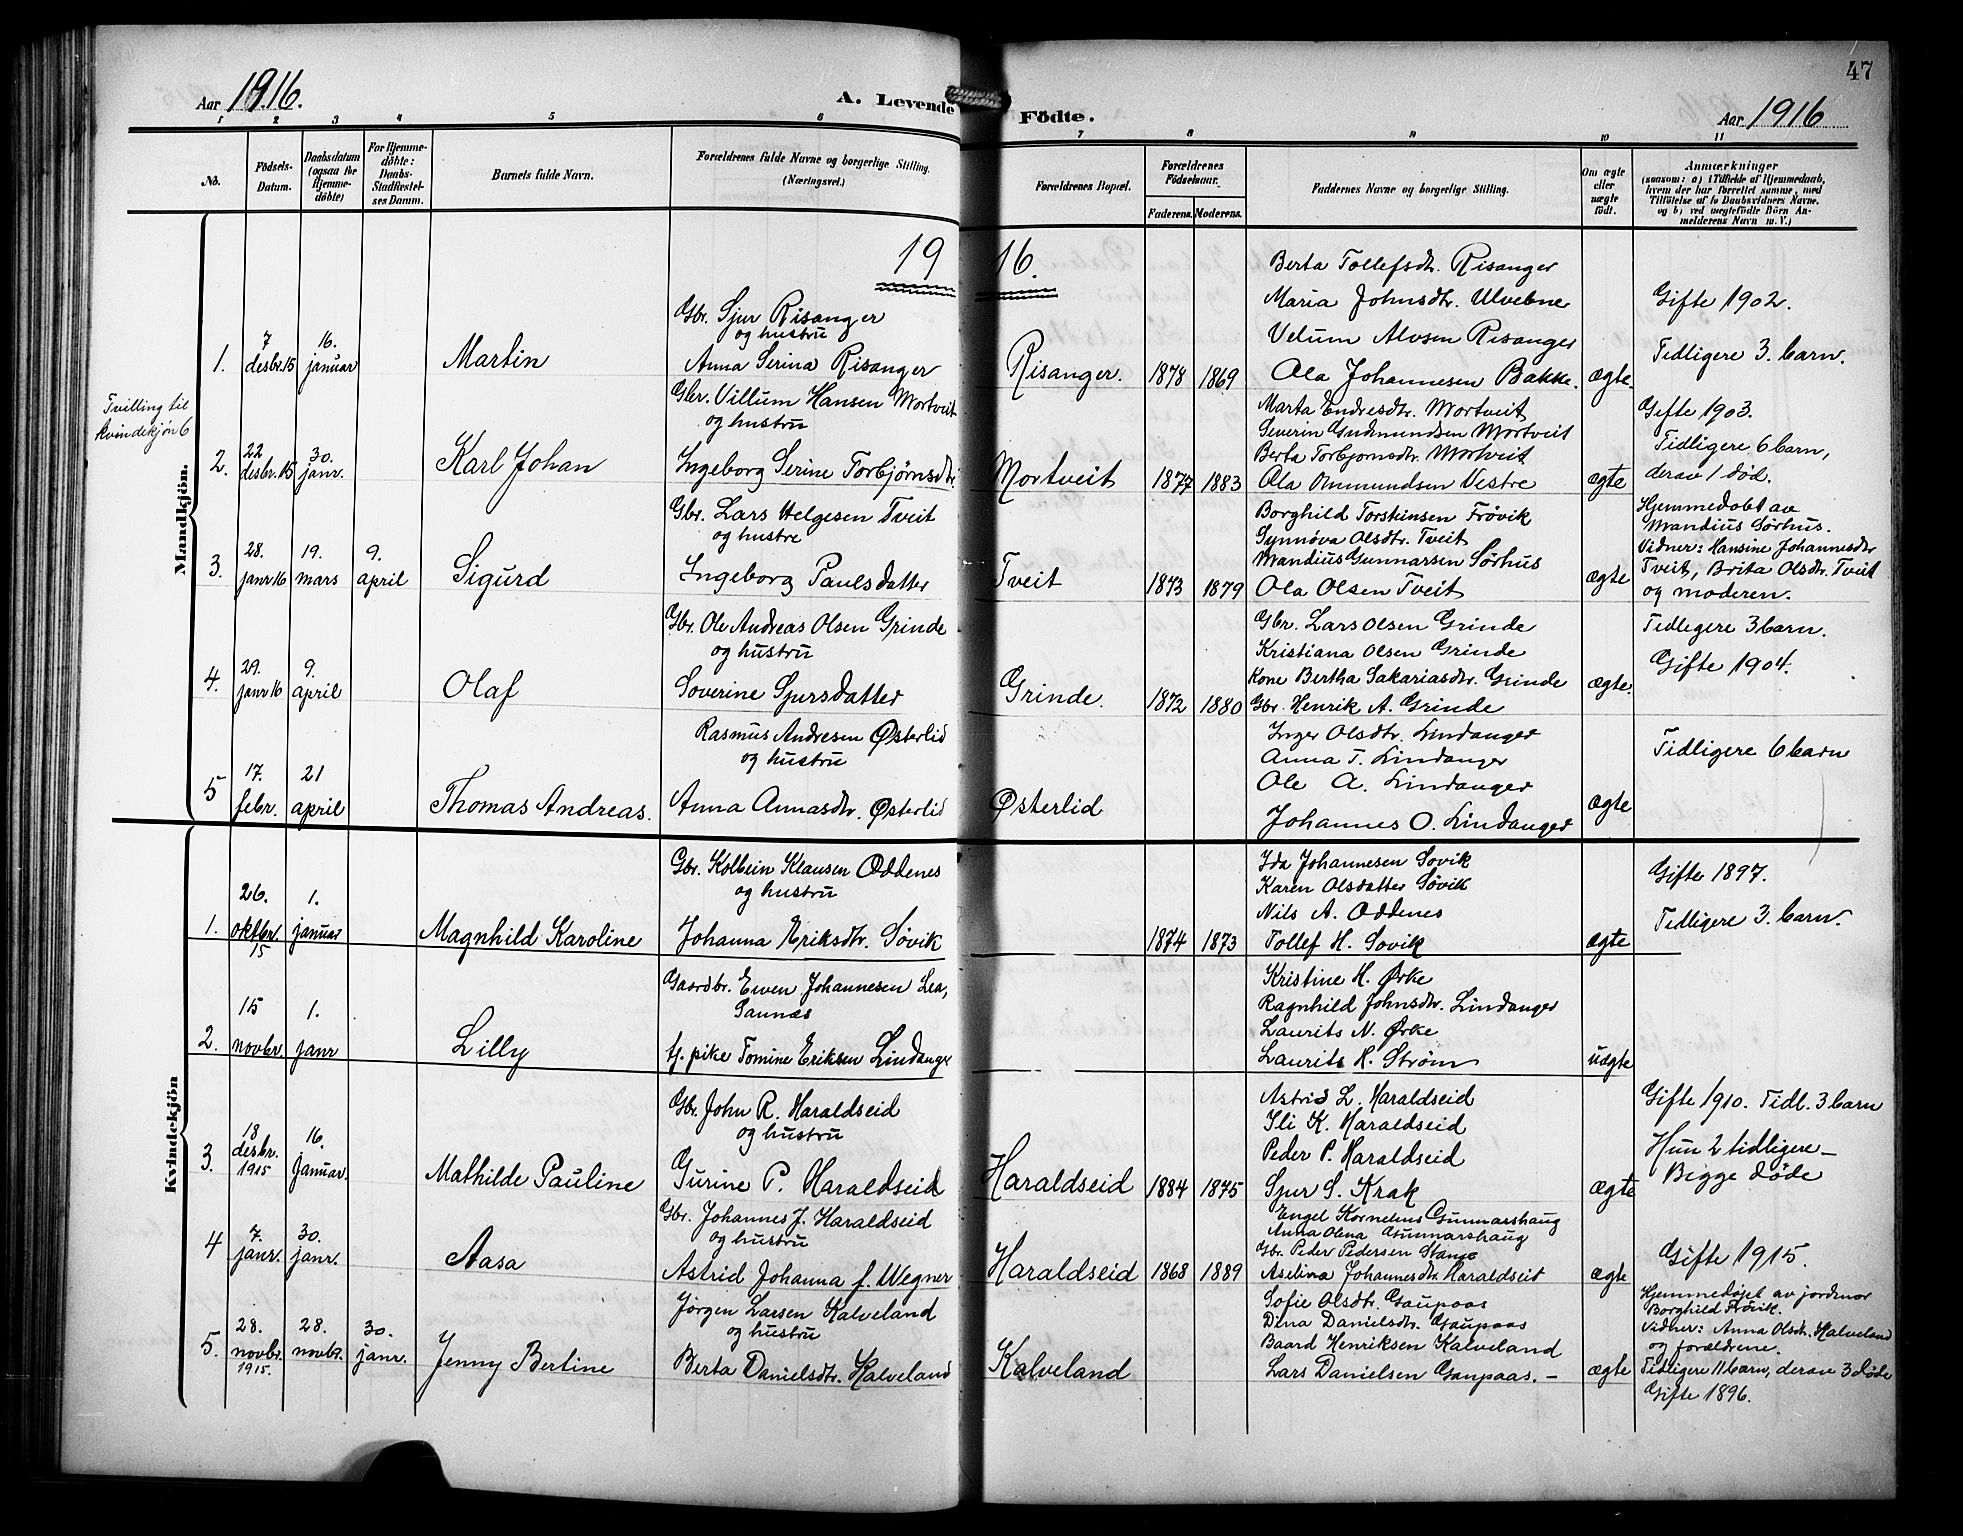 47
Aar 1916.
A. Levende Födte.
Aar 1916
1 2 3 4 5 6 7 8 9 10 11
No.
Födsels-Datum.
Daabsdatum (ogsaa for Hjemme-döbte)
For Hjemme-döbte: Daabs-Stadfæstel-ses Datum.
Barnets fulde Navn.
Forældrenes fulde Navne og borgerlige Stilling. (Næringsvei.)
Forældrenes Bopæl.
Forældrenes Födselsaar.
Faderens. Moderens.
Faddernes Navne og borgerlige Stilling.
Om ægte eller uægte födt.
Anmærkninger
(saasom: a) i Tilfælde af Hjemmedaab, hvem der har forrettet samme, med Tilföielse af to Daabsvidners Navne, og b) ved uægtefödte Börn An-melderens Navn m. V.)
19 16.
Mandkjön.
1.
7 desbr. 15
16. januar
Martin
Gbr. Sjur Risanger
og hustru
Anna Serina Risanger
Risanger.
1878 1869
Berta Tollefsdtr. Risanger
Maria Johnsdtr. Ulvebne
Velum Alvsen Risanger
Ola Johannesen Bakke.
ægte.
Gifte 1902.
Tidligere 3. barn.
Tvilling til
kvindekjön 6
2.
22 desbr. 15
30. janr.
Karl Johan
Gbr. Villum Hansen Mortveit
og hustru
Ingeborg Serine Torbjørnsdtr
Mortveit
1877 1883
Marta Endresdtr. Mortveit
Severin Gudmundsen Mortveit
Berta Torbjornsdtr. Mortveit
Ola Ommundsen Vestre
ægte
Gifte 1903.
Tidligere 6 barn,
derav 1 död.
3.
28. janr 16
19. mars
9. april
Sigurd
Gbr. Lars Helgesen Tveit
og hustre
Ingeborg Paulsdatter
Tveit
1873 1879
Borghild Torsteinsen Frövik
Synnöva Olsdtr. Tveit
Mandius Gunnarsen Sörhus
Ola Olsen Tveit
ægte
Hjemmedöbt av
Mandius Sörhus.
Vidner: Hansine Johannesdtr
Tveit, Brita Olsdtr. Tveit
og moderen.
4.
29. janr 16
9. april
Olaf
Gbr. Ole Andreas Olsen Grinde
og hustru
Soverine Sjursdatter
Grinde.
1872 1880
Gbr. Lars Olsen Grinde
Kristiana Olsen Grinde
Kone Bertha Sakariasdtr. Grinde
Gbr. Henrik A. Grinde
ægte.
Tidligere 3 barn.
Gifte 1904.
5
17. febr.
21 april
Thomas Andreas.
Rasmus Andresen Østerlid
og hustru
Anna Annasdtr. Østerlid
Østerlid
Inger Olsdtr. Lindanger
Anna T. Lindanger
Ole A. Lindanger
Johannes O. Lindanger
ægte
Tidligere 6 barn
Kvindekjön
1.
26. oktbr. 15
1. januar
Magnhild Karoline
Gbr. Kolbein Klausen Oddenes
og hustru
Johanna Eriksdtr. Søvik
1874 1873
Ida Johannesen Sovik
Karen Olsdatter Søvik
Nils A. Oddenes
Tollef H. Sovik
ægte
Gifte 1897.
Tidligere 3. barn.
2.
15 novbr.
1. janr
Lilly
Gaardbr. Ewen Johannesen Lea,
tj. pike Tomine Eriksen Lindanger
Kristine H. Ørke
Ragnhild Johnsdtr. Lindanger
Laurits N. Ørke
Laurits H. Strøm
uægte
3.
18 desbr. 1915
16. Januar.
Mathilde Pauline
Gbr. John R. Haraldseid
og hustru
Gurine P. Haraldseid
Haraldseid
1884 1875
Astrid L. Haraldseid
Ili K. Haraldseid
Peder P. Haraldseid
Sjur S. Krak
ægte
Gifte 1910. Tidl. 3 barn
Hun 2 tidligere –
Bigge döde
4
7. janr.
30. janr.
Aasa
Gbr. Johannes J. Haraldseid
og hustru
Astrid Johanna f. Wegner
Haraldseid
1868 1889
Engel Kornelius Gunnarshaug
Anna Olena Gunnarshaug
Gbr. Peder Pedersen Stange
Aselina Johannesdtr. Haraldseid
ægte
Gifte 1915.
5.
28. novbr. 1915.
28. novbr.
30. janr.
Jenny Bertine
Jörgen Larsen Kalveland
og hustru
Berta Danielsdtr. Kalveland
Kalveland
Sofie Olsdtr. Gaupaas
Dina Danielsdtr. Gaupaas
Baard Henriksen Kalveland
Lars Danielsen Gaupaas. –
ægte
Hjemmedøjet av jordmor
Borghild Frövik.
Vidner: Anna Olsdtr. Kalveland
og forældrene.
Tidligere 11 barn, derav 3 døde
Gifte 1896.